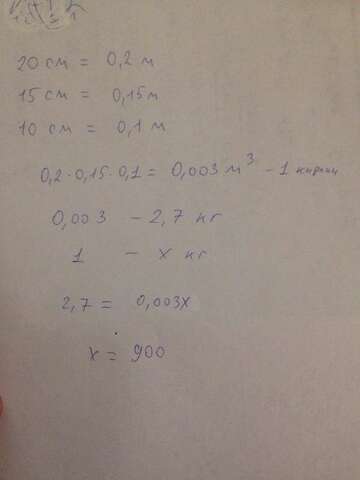 20 см = 0,2 м
15 см = 0,15 м
10 см = 0,1 м
0,2·0,15·0,1 = 0,003 м³ - 1 кирпич
0,003 - 2,7 кг
1 - x кг
2,7 = 0,003x
x = 900